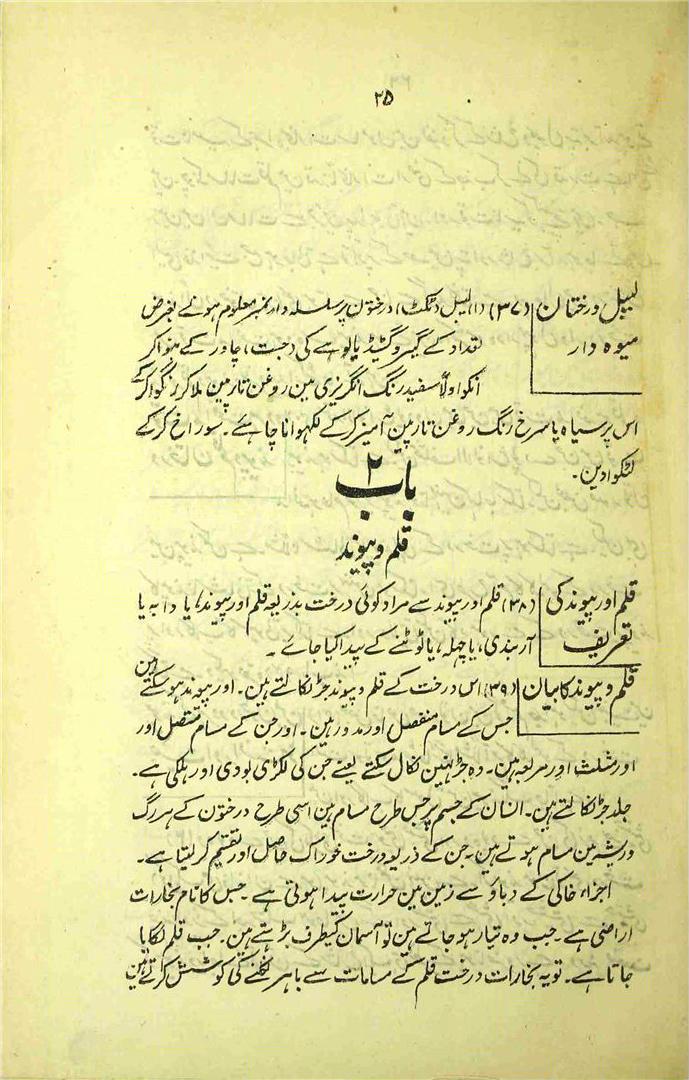 ۲۵
لیبل درختان (۳۷) (الیبل (ٹکٹ) درختون پر سلسلہ وار نمبر معلوم ہونے بغرض
میوہ دار تعداد کے گیر وگیٹڈ یا لوہے کی (جست) چادر کے ہنوا کر
انکو اولاً سفید رنگ انگریزی مین روغن تارپین ملا کر رنگوا کر
اس پر سیاہ یا سرخ رنگ روغن تارپین آمیز کرکے لکھوانا چاہئے۔ سوراخ کرکے
لٹکوا دین۔
باب ۲
قلم و پیوند
قلم اور پیوند کی (۳۸) قلم اور پیوند سے مراد کوئی درخت بذریعہ قلم اور پیوند، یا دابہ یا
تعریف آربندی، یا چہلہ، یا ٹوٹنے کے پیدا کیا جائے۔
قلم و پیوند کا بیان (۳۹) اس درخت کے قلم و پیوند جڑ نکالتے ہین۔ اور پیوند ہو سکتے ہین
جس کے مسام منفصل اور مدور ہین۔ اور جن کے مسام متصل اور
اور مثلث اور مربعہ ہین۔ وہ جڑ نہین نکال سکتے یعنے جن کی لکڑی بودی اور ہلکی ہے۔
جلد جڑ نکالتے ہین۔ انسان کے جسم پر جس طرح مسام ہین اسی طرح درختون کے ہر رگ
و ریشہ مین مسام ہوتے ہین۔ جن کے ذریعہ درخت خوراک حاصل اور تقسیم کر لیتا ہے۔
اجزاء خاکی کے دباؤ سے زمین مین حرارت پیدا ہوتی ہے۔ جس کا نام بخارات
اراضی ہے۔ جب وہ تیار ہو جاتے ہین تو آسمان کیطرف بڑہتے ہین۔ جب قلم لگایا
جاتا ہے۔ تو یہ بخارات درخت قلم کے مسامات سے باہر نکلنے کی کوشش کرتے ہین